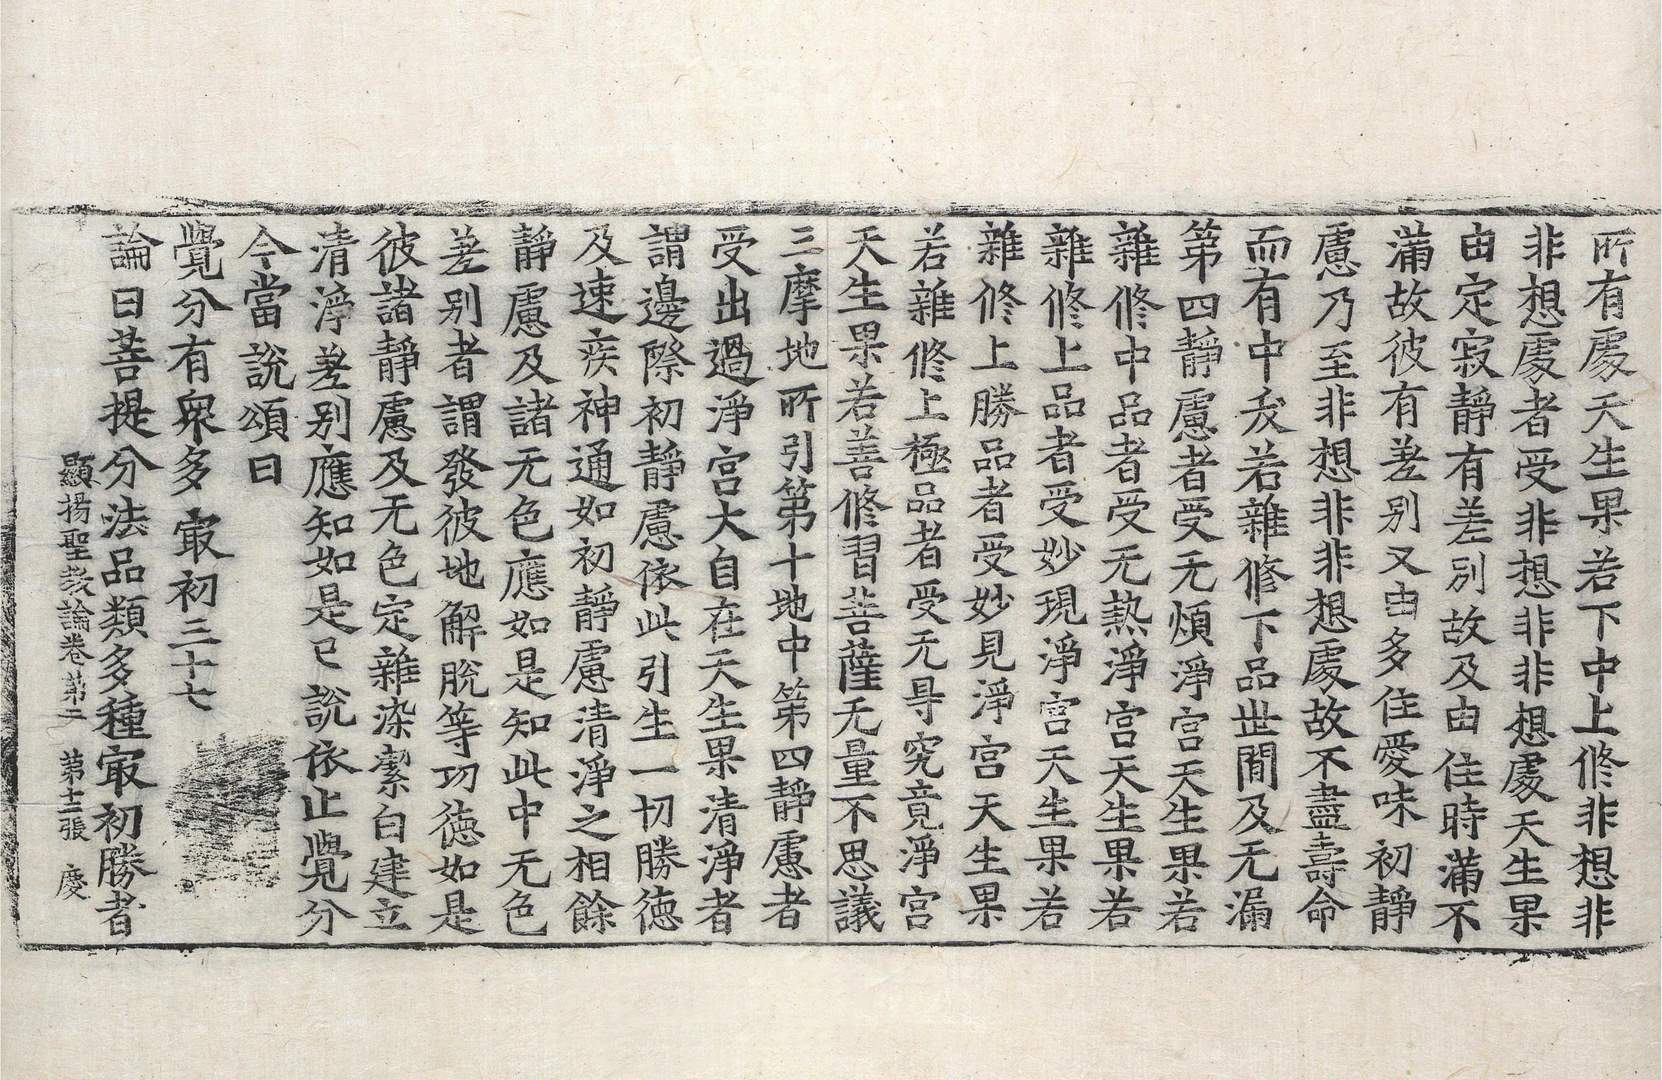 所有處天生果若下中上修非想非
非想處者受非想非非想處天生果
由定寂静有差別故及由住時滿不
滿故彼有差別又由多住愛味初靜
慮乃至非想非非想處故不盡壽命
而有中夭若雜修下品世間及无漏
第四靜慮者受无煩淨宮天生果若
雜修中品者受无熱淨宮天生果若
雜修上品者受妙現淨宮天生果若
雜修上勝品者受妙見淨宮天生果
若雜修上極品者受无㝵究竟淨宮
天生果若善修習菩薩无量不思議
三摩地所引第十地中第四靜慮者
受出過淨宮大自在天生果清淨者
謂邊際初靜慮依此引生一切勝德
及速疾神通如初靜慮清淨之相餘
靜慮及諸无色應如是知此中无色
差別者謂發彼地解脫等功德如是
彼諸靜慮及无色定雜染潔白建立
清淨差別應知如是已說依止覺分
今當說頌曰
覺分有衆多 㝡初三十七
論曰菩提分法品類多種㝡初勝者
顯揚聖教論卷第二 第十三張 慶